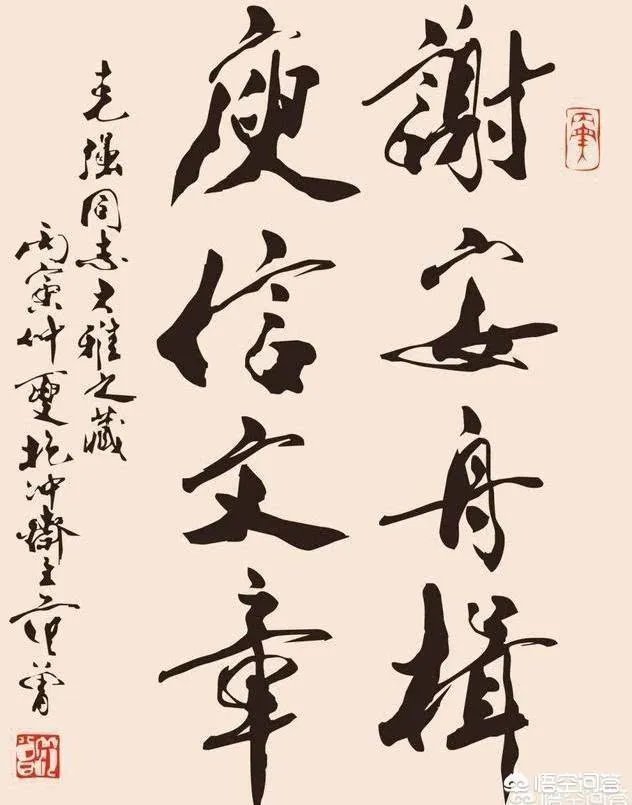 謝安舟楫
庾信文章
克强同志大雅之藏
丙寅仲夏抱冲齋主范曾
悟空问答